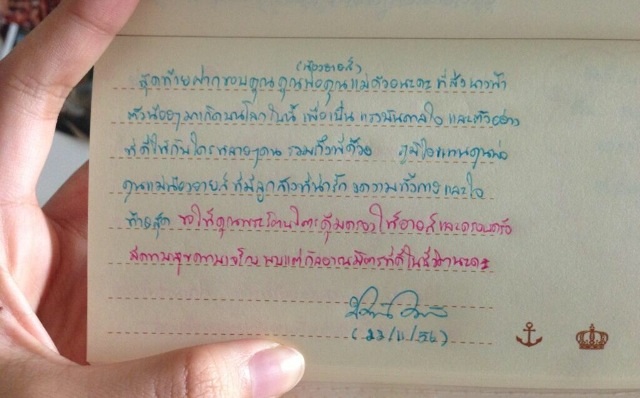 (น้องอายส์)
สุดท้ายฝากขอบคุณ คุณพ่อคุณแม่ด้วยนะคะ ที่ส่งนางฟ้า
ตัวน้อยๆมาเกิดบนโลกใบนี้ เพื่อเป็น แรงบันดาลใจ และตัวอย่าง
ที่ดีให้กับใครหลายๆคน รวมถึงพี่ด้วย ภูมิใจแทนคุณพ่อ
คุณแม่น้องอายส์ ที่มีลูกสาวที่น่ารัก และใจ
ท้ายสุด ขอให้คุณพระรัตนไตรคุ้มครอง ให้อายส์และครอบครัว
มีความสุขความเจริญ พบแต่กัลยาณมิตรที่ดีในชีวิตนะคะ
(23/11/56)